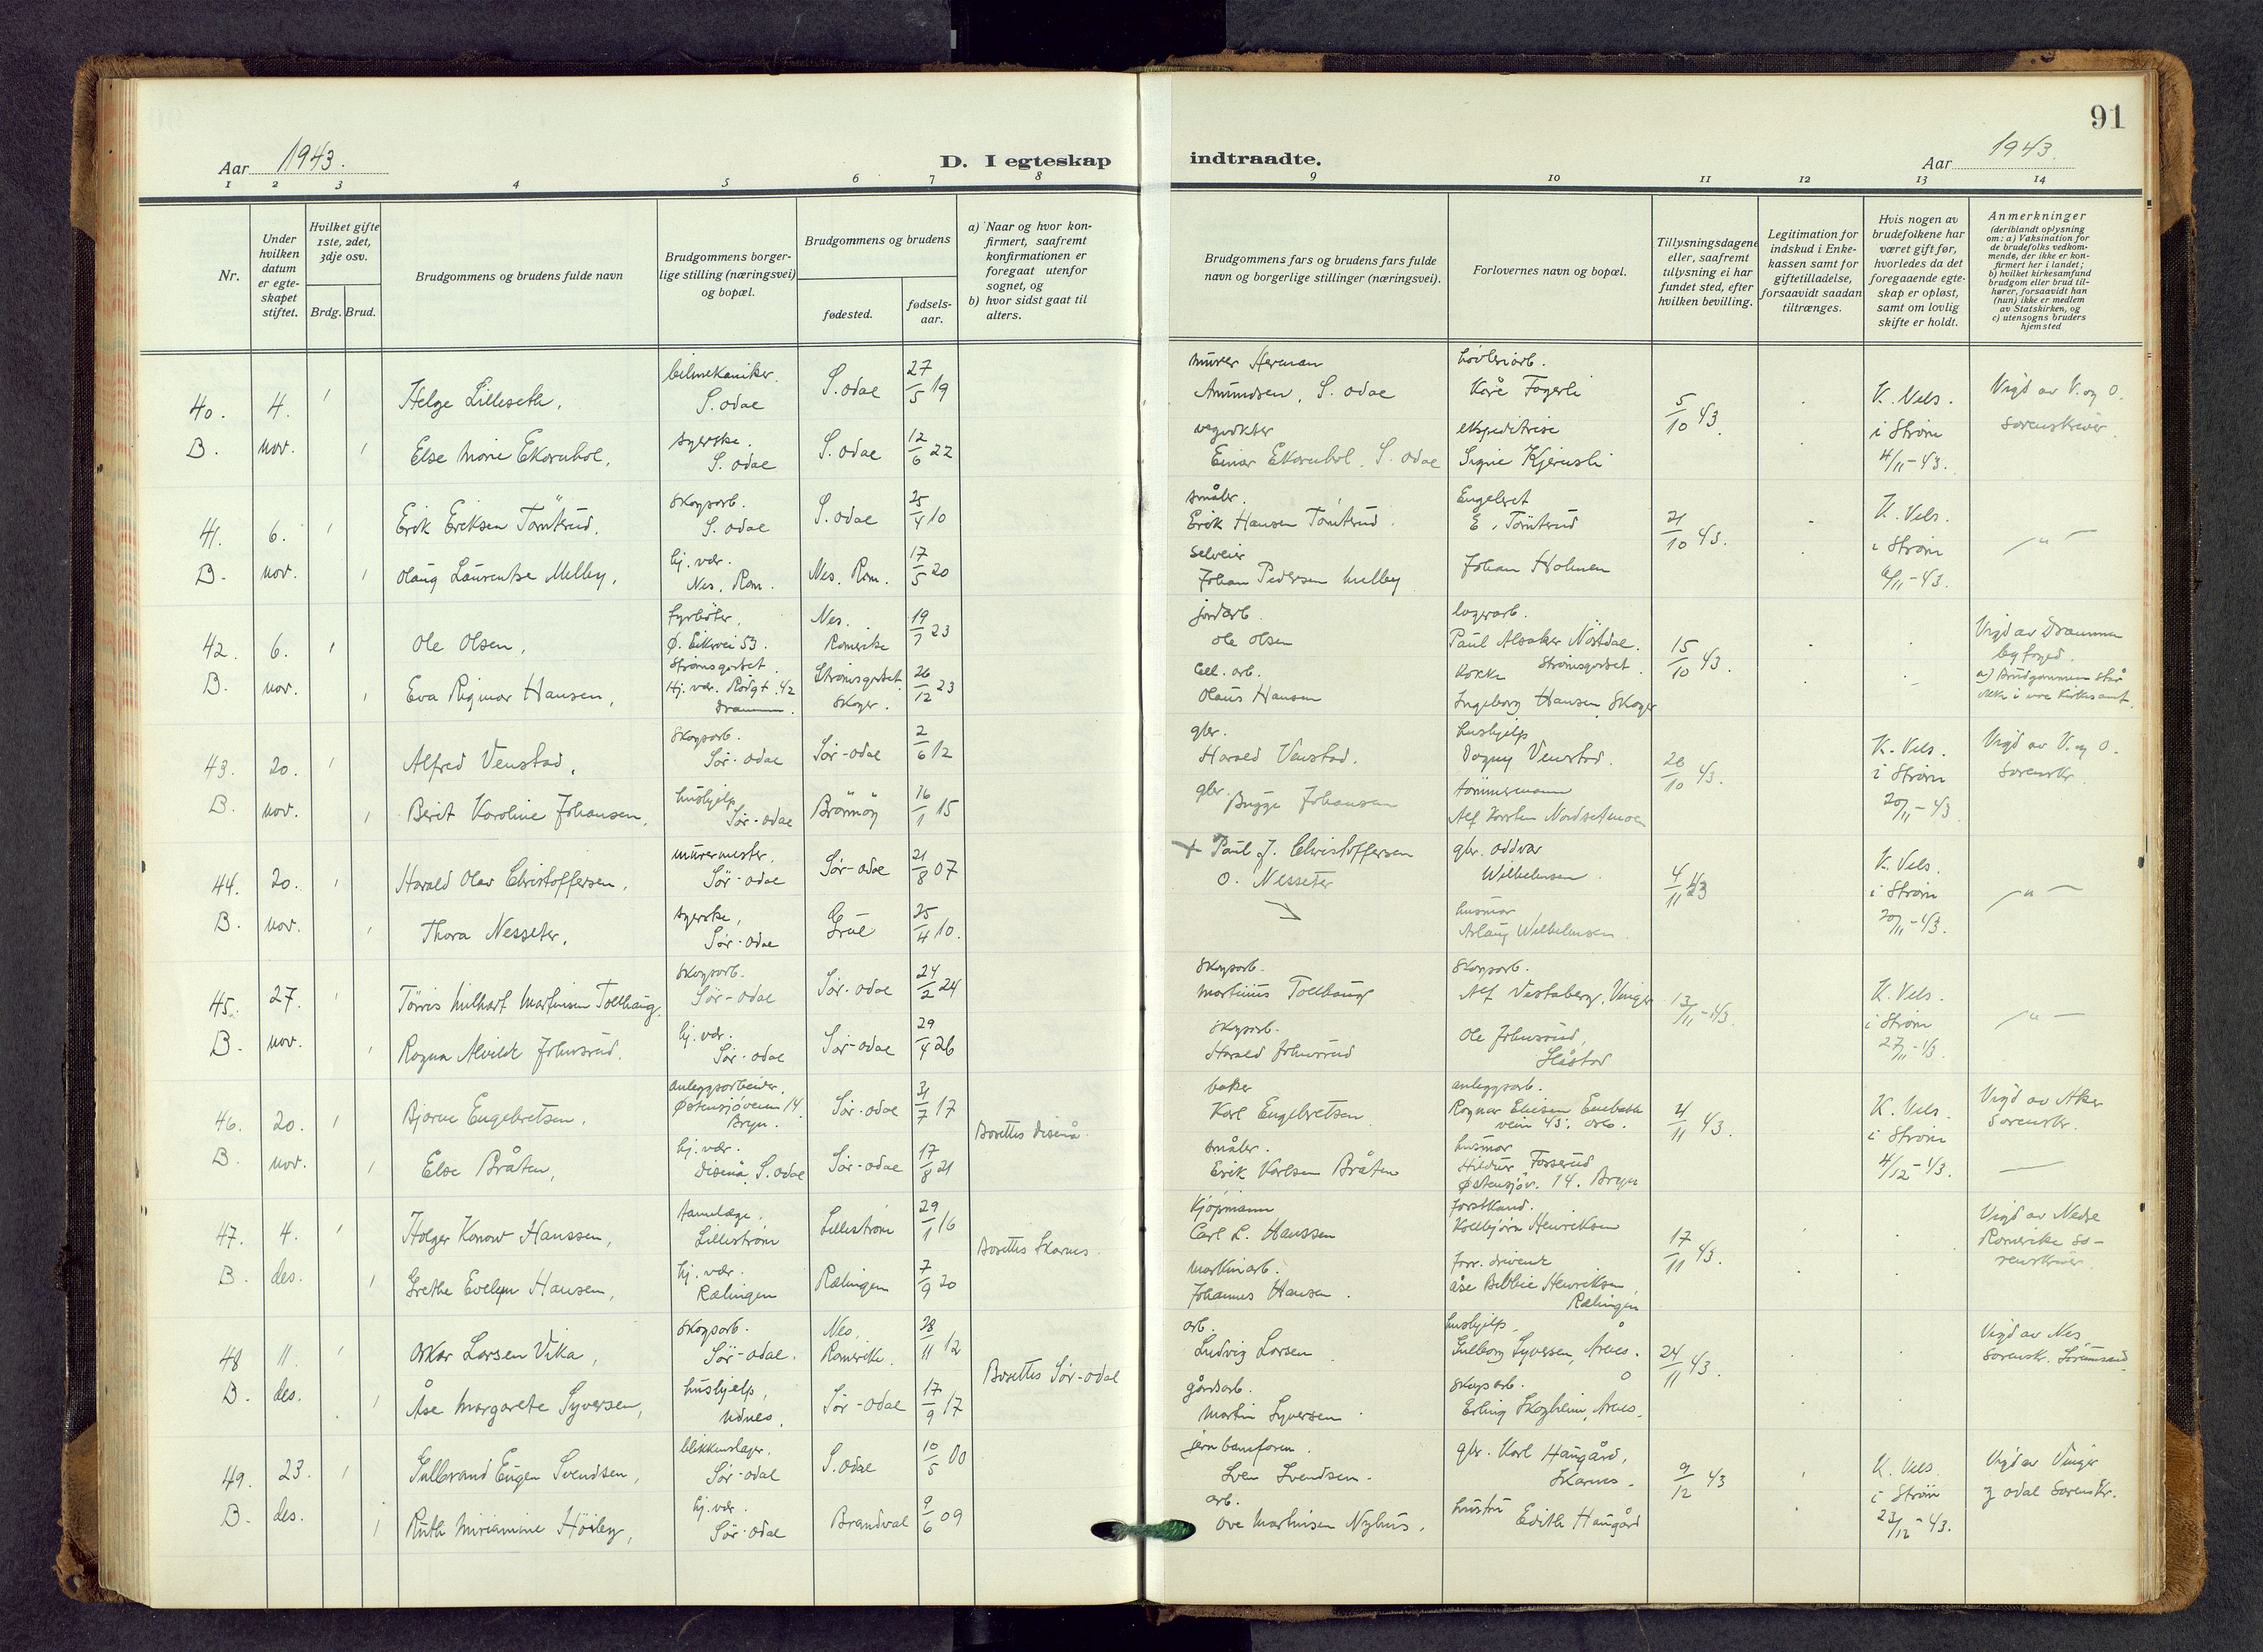 91
Aar 1943.
D. I egteskap indtraadte.
Aar 1943.
1 2 3 4 5 6 7 8 9 10 11 12 13 14
Nr.
Under hvilken datum er egteskapet stiftet.
Hvilket gifte 1ste, 2det, 3dje osv.
Brdg. Brud.
Brudgommens og brudens fulde navn
Brudgommens borgerlige stilling (næringsvei) og bopæl.
Brudgommens og brudens
fødested.
fødselsaar.
a) Naar og hvor konfirmert, saafremt konfirmationen er foregaat utenfor sognet, og
b) hvor sidst gaat til alters.
Brudgommens fars og brudens fars fulde navn og borgerlige stillinger (næringsvei).
Forlovernes navn og bopæl.
Tillysningsdagene eller, saafremt tillysning ei har fundet sted, efter hvilken bevilling.
Legitimation for indskud i Enkekassen samt for giftetilladelse, forsaavidt saadan tiltrænges.
Hvis nogen av brudefolkene har været gift før, hvorledes da det foregaaende egteskap er opløst, samt om lovlig skifte er holdt.
Anmerkninger (deriblandt oplysning om: a) Vaksination for de brudefolks vedkommende, der ikke er konfirmert her i landet; b) hvilket kirkesamfund brudgom eller brud tilhører, forsaavidt han (hun) ikke er medlem av Statskirken, og c) utensogns bruders hjemsted
40. 4. 1 Helge Lilleseth, bilmekaniker. S. Odal S. Odal 27/5 19 murer Herman Amundsen, S. Odal høvleriarb. Kåre Fagerli 5/10 43. K. Vels. i Strøm 4/11-43. Vigd av V. og O. sorenskriver.
B. nov. 1 Else Marie Ekornhol, syerske. S. Odal S. Odal 12/6 22 vegvokter Einar Ekornhol, S. Odal ekspeditrise Signe Kjernsli
41. 6. 1 Erik Eriksen Tørnterud. skogsarb. S. Odal S. Odal 25/4 10 småbr. Erik Hansen Tørnterud. Engebret E. Tørnterud 21/10 43. K. Vels. i Strøm 6/11-43. — " —
B. nov. 1 Olaug Laurentse Melby, hj. vær. Nes. Rom. Nes. Rom. 17/5 20 selveier Johan Pedersen Melby Johan Holmen
42. 6. 1 Ole Olsen, fyrbøter, Ø. Eikervei 53. Strømsgodset. Nes. Romerike 19/7 23 jordarb. Ole Olsen lagerarb. Paul Alsaker Nøstdal. Strømsgodset. 15/10 43. Vigd av Drammen byfoged. a) Brudgommen står ikke i noe kirkesamf.
B. nov. 1 Eva Rigmor Hansen, Hj. vær. Rådgt. 42 Drammen. Strømsgodset Skoger. 26/12 23 cell. arb. Olaus Hansen kokke Ingeborg Hansen, Skoger
43. 20. 1 Alfred Venstad, skogsarb. Sør-Odal Sør-Odal 2/6 12 gbr. Harald Venstad. hushjelp Dagny Venstad. 28/10 43. K. Vels. i Strøm 20/11-43 Vigd av V. og O. sorenskr.
B. nov. 1 Berit Karoline Johansen, hushjelp Sør-Odal Brønnøy 16/1 15 gbr. Brygge Johansen tømmermann Alf Torsten Nordsetmoen
44. 20. 1 Harald Olav Christoffersen, murermester. Sør-Odal Sør-Odal 21/8 07 + Paul J. Christoffersen gbr. Oddvar Wilhelmsen. 4/11 43 K. Vels. i Strøm 20/11-43. — " —
B. nov. 1 Thora Nesseter, syerske, Sør-Odal Grue 25/4 10. O. Nesseter husmor Aslaug Wilhelmsen.
45. 27. 1 Tørris Milhart Martinsen Tollhaug. skogsarb. Sør-Odal Sør-Odal 24/2 24 skogsarb. Martinius Tollhaug skogsarb. Alf Vestaberg, Vinger 13/11-43. K. Vels. i Strøm 27/11-43. — " —
B. nov. 1 Ragna Alvilde Johnsrud. hj. vær. Sør-Odal Sør-Odal 29/4 26 skogsarb. Harald Johnsrud Ole Johnsrud, Slåstad
46. 20. 1 Bjarne Engebretsen. anleggsarbeider, Østensjøveien 14. Bryn. Sør-Odal 31/7 17 Bosettes Disenå. baker Karl Engebretsen anleggsarb. Ragnar Eliesen Enebakkveien 43. Oslo. 4/11 43. K. Vels. i Strøm 4/12-43. Vigd av Aker sorenskr.
B. nov. 1 Else Bråten, hj. vær. Disenå, S. Odal Sør-Odal 17/8 21 småbr. Erik Karlsen Bråten husmor Hildur Fosserud Østensjøv. 14. Bryn —
47. 4. 1 Holger Konow Hanssen, tannlæge. Lillestrøm Lillestrøm 29/1 16 Bosettes Skarnes. Kjøpmann Carl L. Hanssen forstkand. Kolbjørn Henriksen 17/11 43. Vigd av Nedre Romerike sorenskriver.
B. des. 1 Grethe Evelyn Hansen, hj. vær. Rælingen Rælingen 7/9 20 maskinarb. Johannes Hansen. forr. drivende Åse Bibbie Henriksen, Rælingen
48 11. 1 Oskar Larsen Vika, skogsarb. Sør-Odal. Nes, Romerike. 28/11 12 Bosettes Sør-Odal arb. Ludvig Larsen hushjelp. Gulborg Syversen, Årnes. 24/11 43. Vigd av Nes sorenskr. Sørumsand.
B. des. 1 Åse Margarete Syversen, hushjelp, Udnes, Sør-Odal 17/9 17 gårdsarb. Martin Syversen skogsarb. Erling Skogheim, Årnes.
49. 23. 1 Gulbrand Eugen Svendsen, blikkenslager. Sør-Odal S. Odal 10/5 00 jernbaneform. Sven Svendsen. gbr. Karl Haugård, Skarnes. 9/12 43 K. Vels. i Strøm 23/12-43. Vigd av Vinger g Odal sorenskr.
B. des. 1 Ruth Miriamine Høiby, hj. vær. Sør-Odal Brandval 9/6 09 arb. Ove Martinsen Nyhus. hustru Edith Haugård